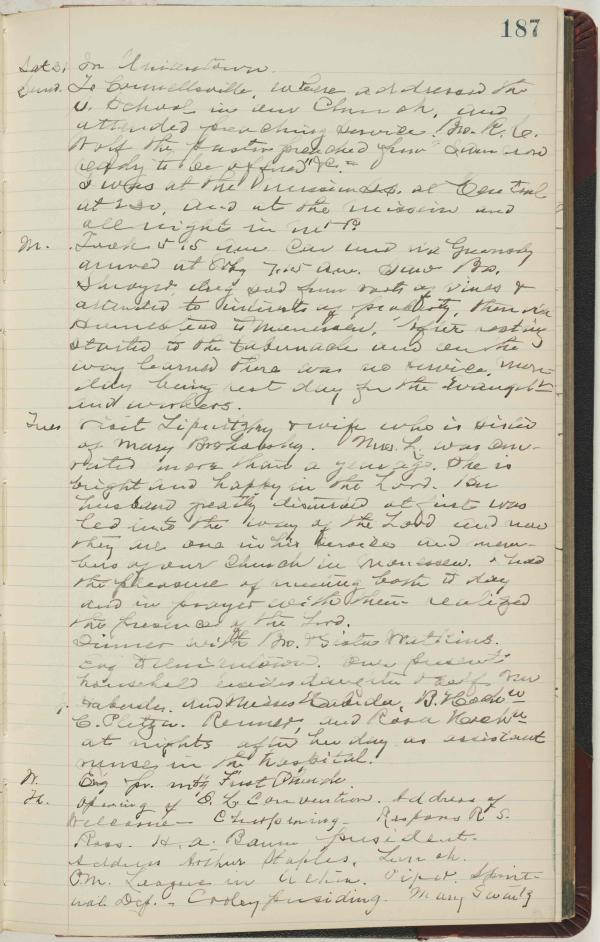 187
Sat 31 In Uniontown.
Sund. To Connellsville, where addressed the
S. School in our Church, and
attended preaching service. Bro. R. C.
Wolf the pastor preached from "I am now
ready to be offered" &c. =
I was at the mission S.S. at Central
at 2 30, and at the mission and
all night in Mt P.
M. Took 5 15 am Car and via Greensbg
arrived at 7.15 am. Saw Bro.
Shroyer, dug sod from roots of vines &
attended to interests of property, then via
Homestead to Monessen. After resting
started to the tabernacle and on the
way learned there was no service, Mon-
day being rest day for the Evangelist
and workers.
Tues Visit Lipwitzky & wife who is sister
of Mary Brohovsky. Mrs. L. was con-
verted more than a year ago. She is
bright and happy in the Lord. Her
husband greatly disturbed at first was
led into the way of the Lord and now
they are one in his service and mem-
bers of our Church in Monessen. I had
the pleasure of meeting both to day
and in prayer with them realized
the presence of the Lord.
Dinner with Bro. & Sister Watkins.
Evg Our present
household besides daughter & self
and Misses B. Koch
C. Plitza. Renner, and Rosa Koch
at nights after her day as assistant
nurse in the hospital.
W. Evg pr. mtg First Church.
Th. Opening of E. L. Convention. Address of
Welcome Response R. S.
Ross. H. A. Baum president.
Address Arthur Staples. Lunch.
P.M. League in Action. Spirit-
ual Dep. - Cooley presiding. Mary Swartz